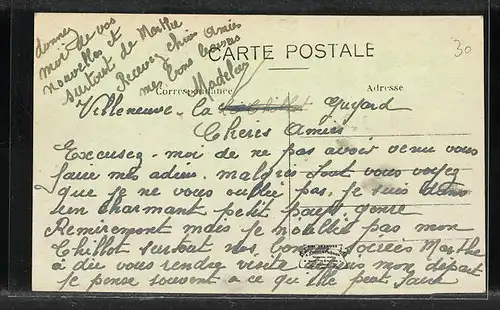 CARTE POSTALE
Correspondance
Adresse
30
Villeneuve - la Guyard
Chères Amies
Excusez - moi de ne pas avoir venu vous
faire mes adieu. malgrès tout vous voyez
que je ne vous oublie pas, je suis dans
un charmant petit pays, genre
Remiremont mais je n'oublie pas mon
Chillot surtout vos bonnes soirées Marthe
a du vous rendre visite depuis mon départ
je pense souvent a ce qu'elle peut faire
donnez
moi de vos
nouvelles et
surtout de Marthe
Recevez chères Amies
mes bons baisers
Madeleine